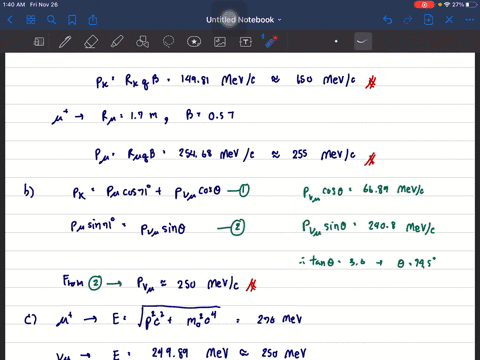 1:40 AM Fri Nov 26
27%
Untitled Notebook
Pκ = Rκ q B = 149.81 MeV/c ≈ 150 MeV/c
μ⁺ → Rμ = 1.7 m, B = 0.57
Pμ = Rμ q B = 254.68 MeV/c ≈ 255 MeV/c
b) Pκ = Pμ cos71° + Pνμ cosθ — ①
Pνμ cosθ = 66.89 MeV/c
Pμ sin71° = Pνμ sinθ — ②
Pνμ sinθ = 240.8 MeV/c
∴ tanθ = 3.6 → θ = 74.5°
From ② → Pνμ ≈ 250 MeV/c
c) μ⁺ → E = √(p²c² + m₀²c⁴) = 276 MeV
νμ → E = 249.89 MeV ≈ 250 MeV